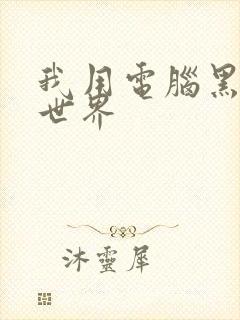 我用電腦黑
世界
沐靈犀